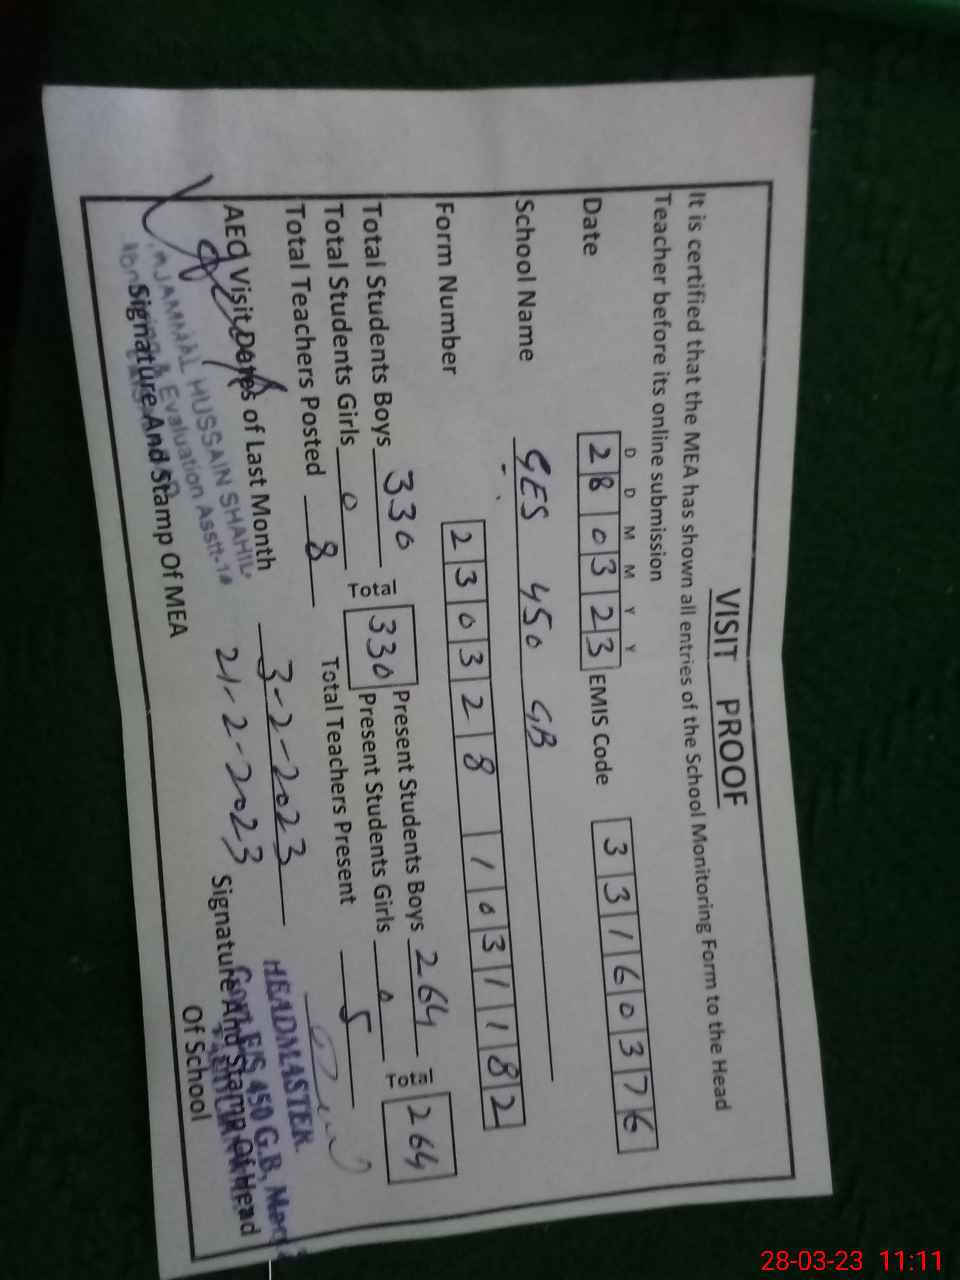 VISIT PROOF
It is certified that the MEA has shown all entries of the School Monitoring Form to the Head
Teacher before its online submission
D D M M Y Y
Date 280323 EMIS Code 33160376
School Name GES 450 GB
Form Number 230328 1031182
Total Students Boys 330 Total 330 Present Students Boys 264 Total 264
Total Students Girls 0 Present Students Girls 0
Total Teachers Posted 8 Total Teachers Present 5
AEO Visit Dates of Last Month 3-2-2023
21-2-2023
HUSSAIN SHAHID
Evaluation Asstt-1
Signature And Stamp Of MEA
HEADMASTER
E/S 450 G.B,
Signature And Stamp Of Head
Of School
28-03-23 11:11